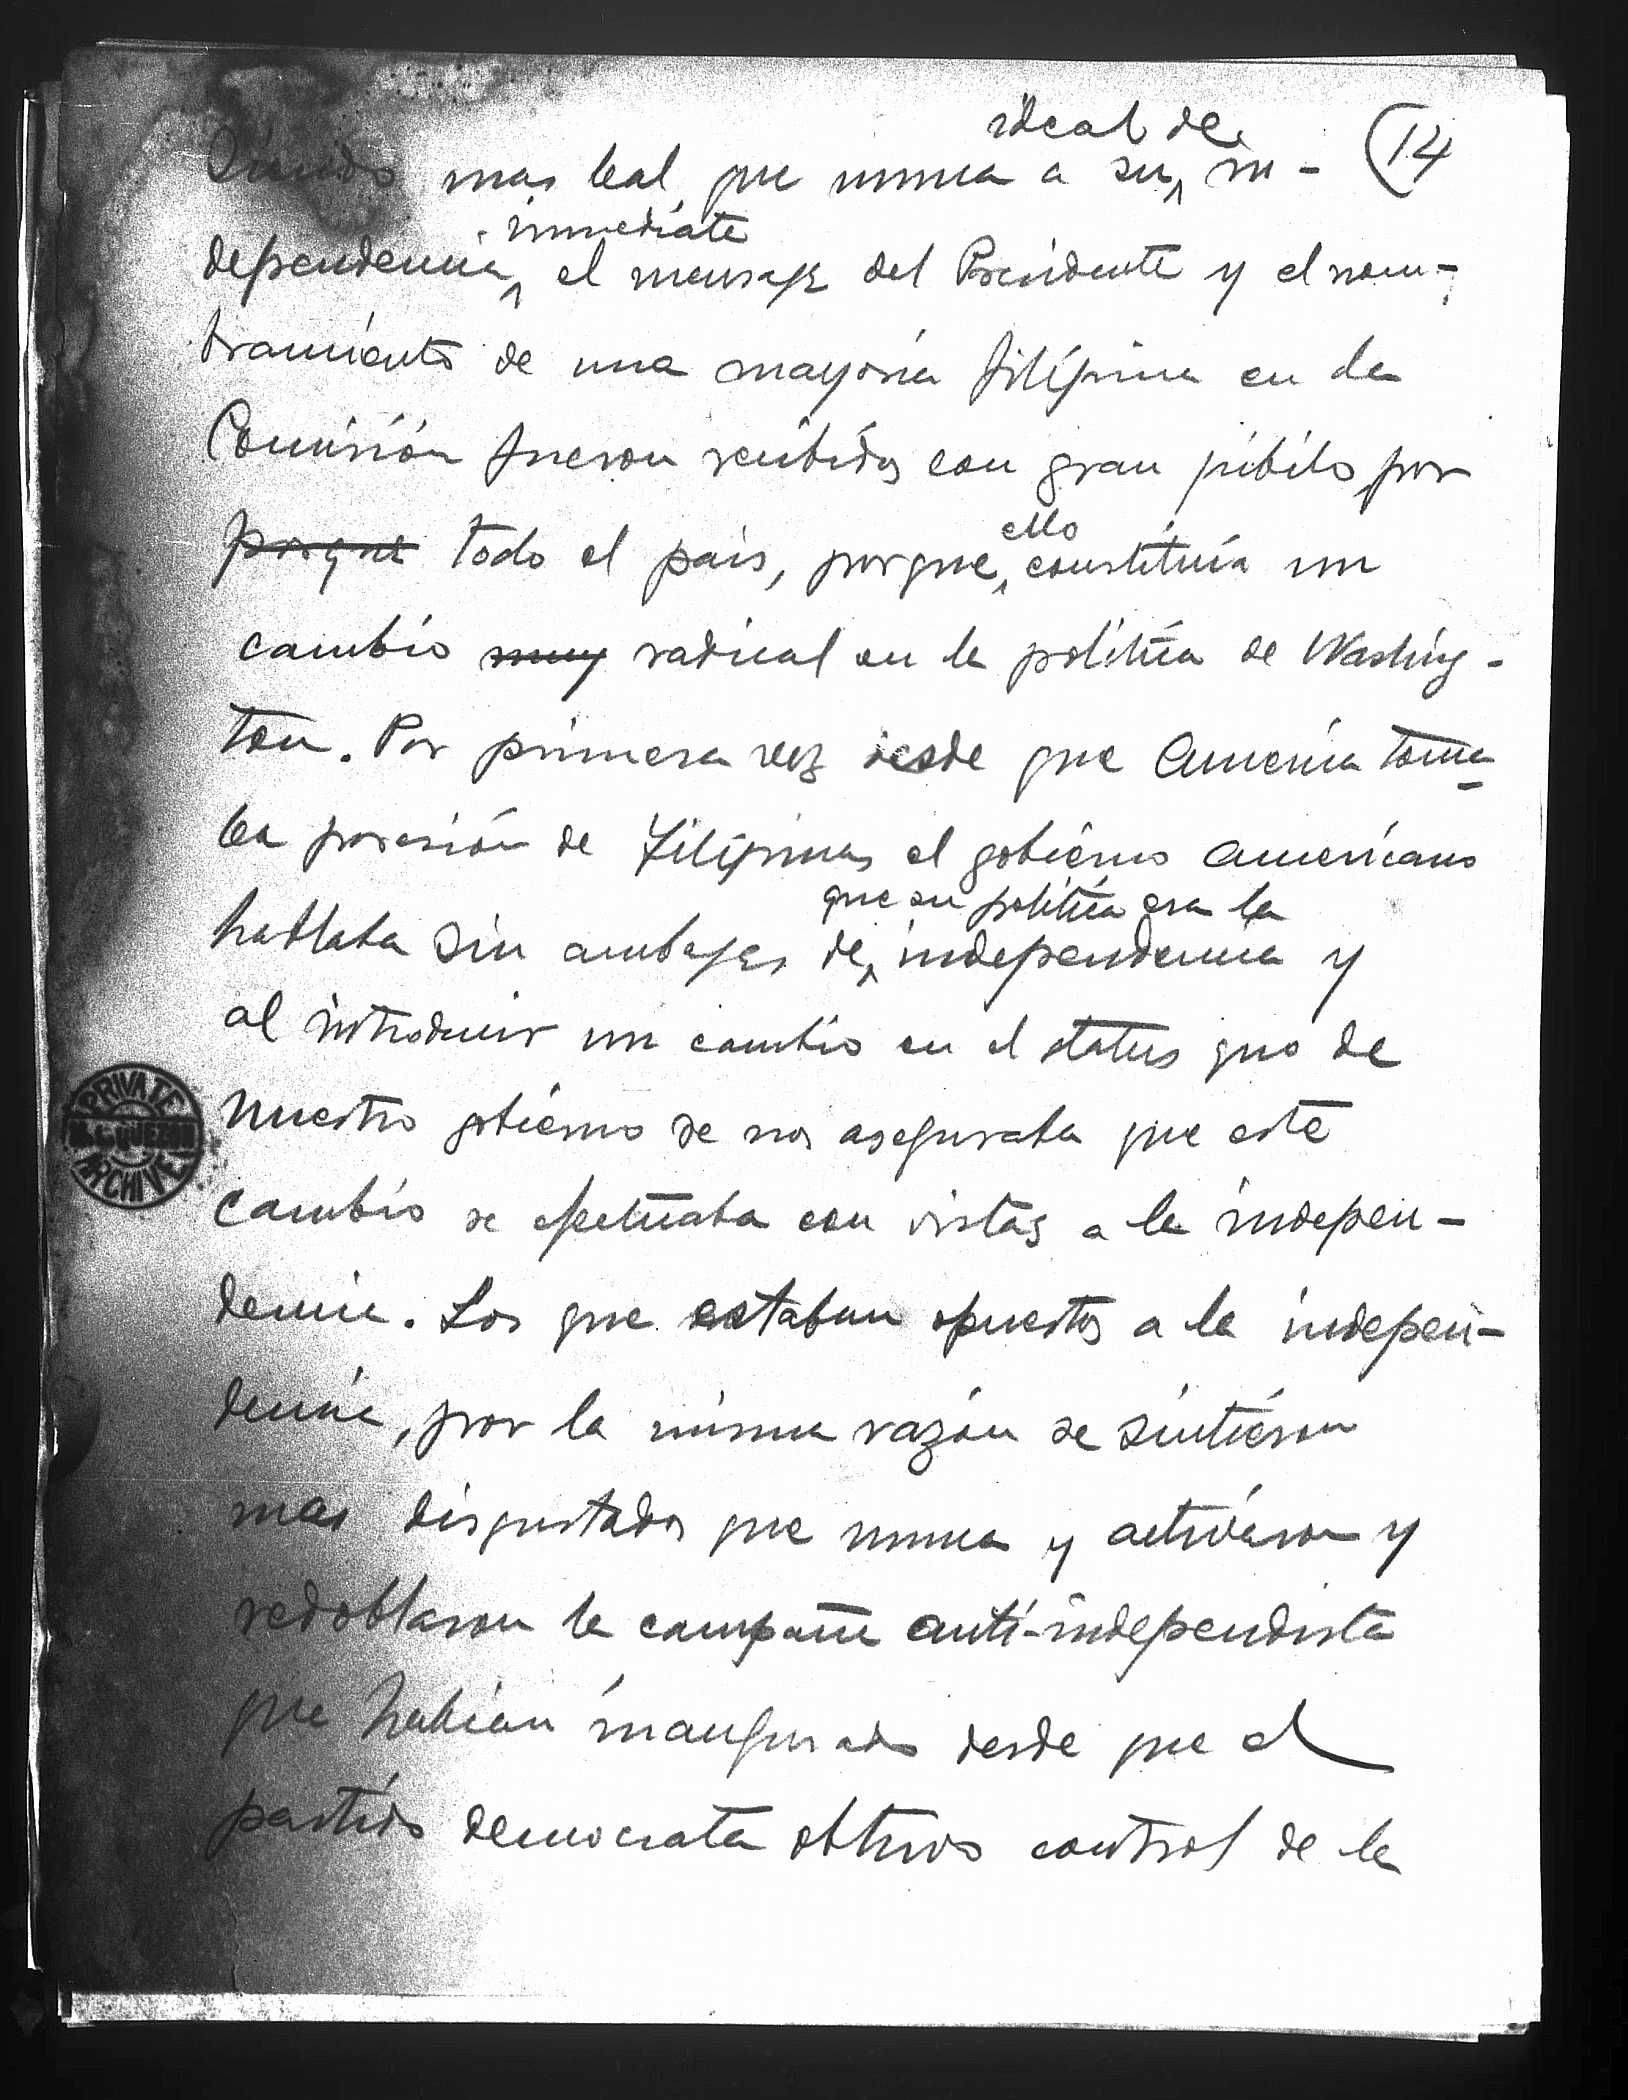 ideal de (14
mas leal que nunca a su in-
immediata
dependencia, el mensaje del Presidente y el nom-
bramiento de una mayoria filipina en la
Comisión fueron recibidos con gran júbilo por
porque todo el pais, porque constituía un
ello
cambio muy radical en la política de Washing-
ton. Por primera vez desde que America toma-
ba posesión de Filipinas el gobierno americano
que su política era la
hablaba sin ambajes de independencia y
al introducir un cambio en el status quo de
nuestro gobierno se nos aseguraba que este
cambio se efectuaba con vistas a la indepen-
dencia. Los que estaban opuestos a la indepen-
dencia, por la misma razón se sintieron
mas disgustados que nunca y activaron y
redoblaron la campaña anti-independista
que habían inaugurado desde que el
partido democrata obtuvo control de la
PRIVATE
QUEZON
ARCHIVE